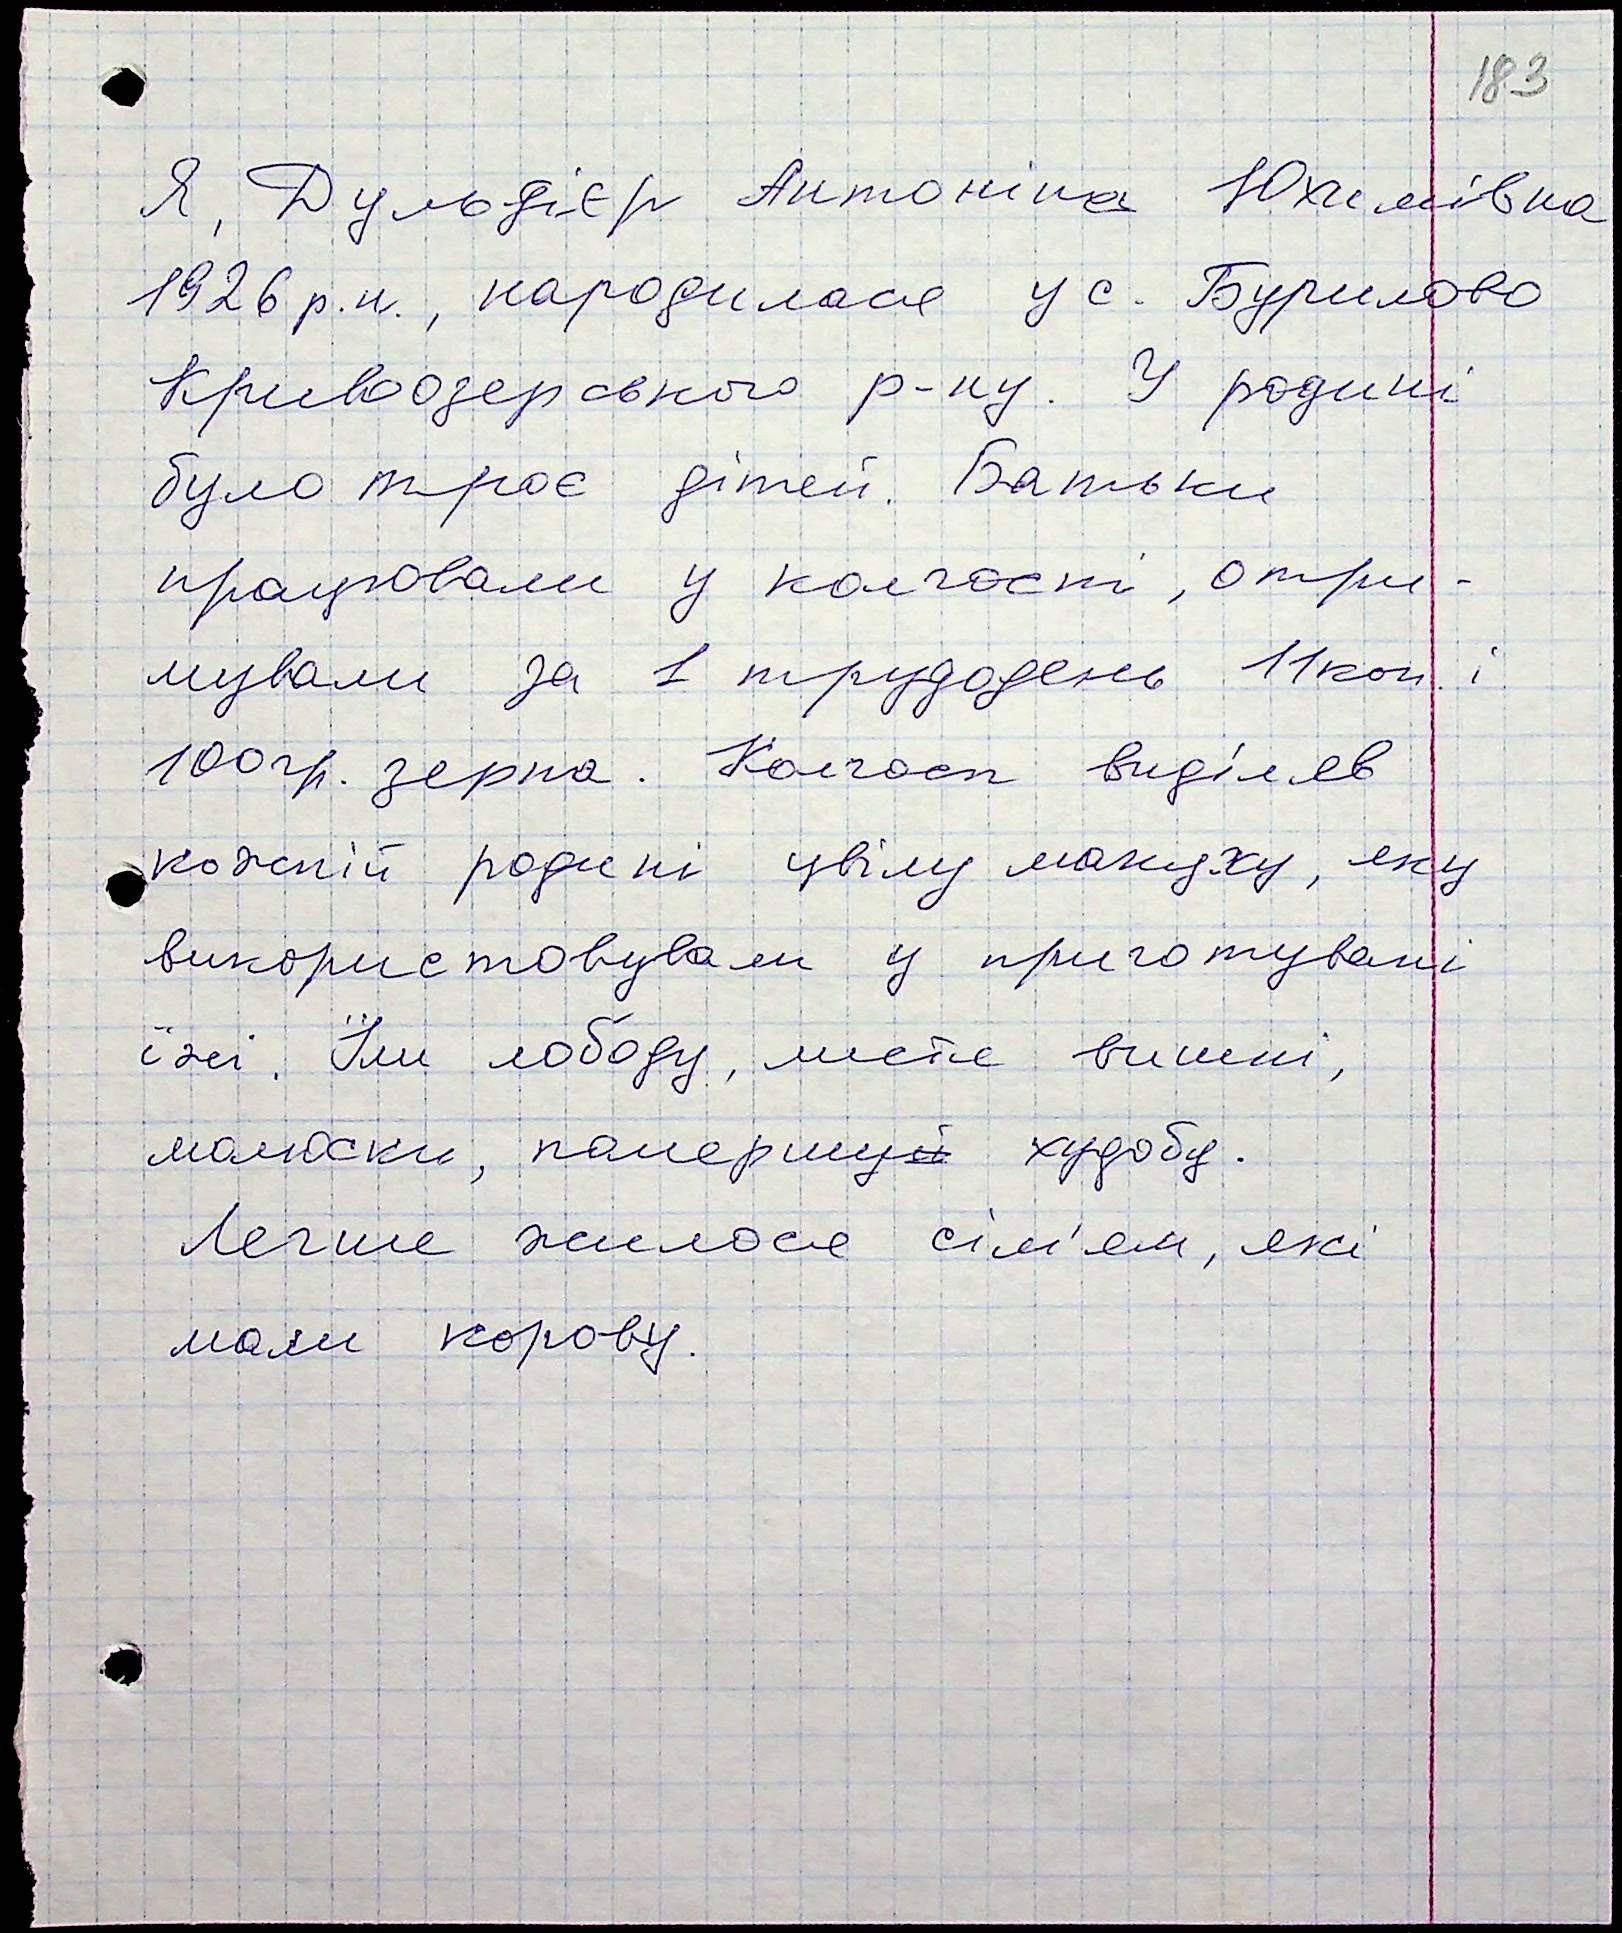 183
Я, Дульдієр Антоніна Юхимівна
1926 р.н., народилася у с. Бурилово
Кривоозерського р-ну. У родині
було троє дітей. Батьки
працювали у колгоспі, отри-
мували за 1 трудодень 11 коп. і
100 гр. зерна. Колгосп виділяв
кожній родині цвілу макуху, яку
використовували у приготувані
їжі. Їли лободу, листя вишні,
малюски, памершу худобу.
Легше жилося сім'ям, які
мали корову.